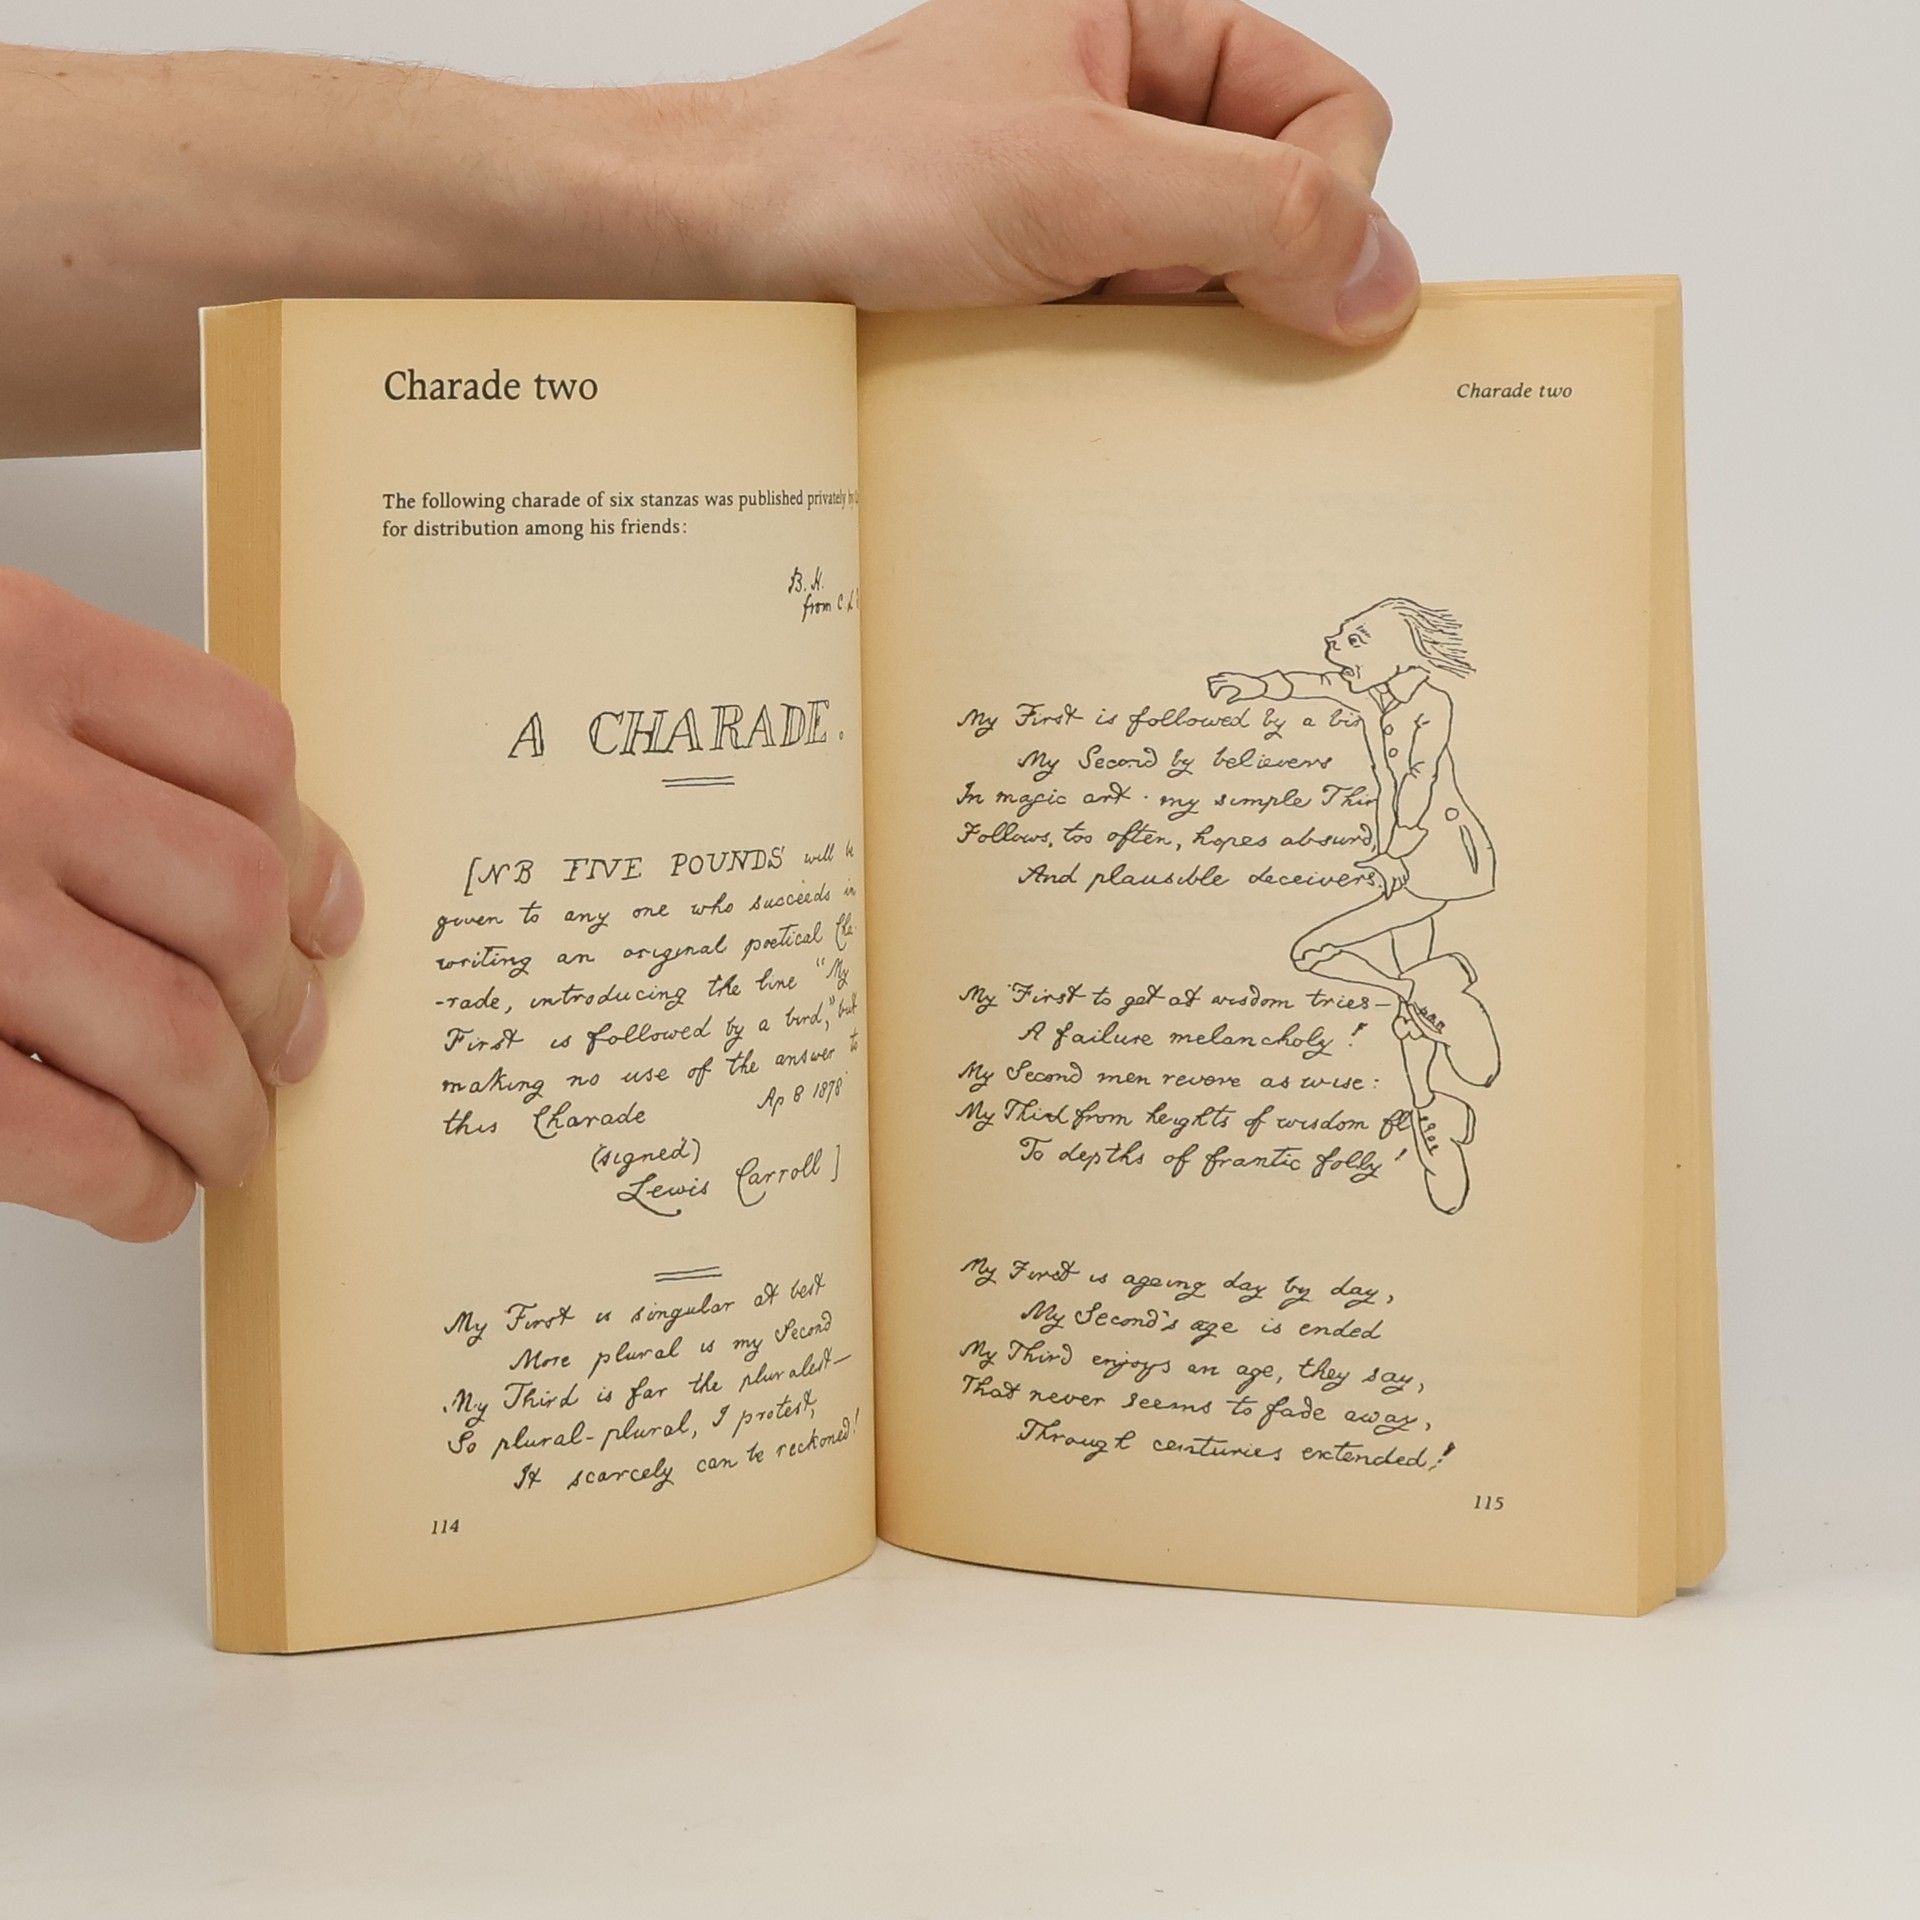 Charade two
The following charade of six stanzas was published privately
for distribution among his friends:
B. H.
from C L
A CHARADE.
[NB FIVE POUNDS will be
given to any one who succeeds in
writing an original poetical Cha-
-rade, introducing the line "My
First is followed by a bird," but
making no use of the answer to
this Charade
Ap 8 1878
(signed)
Lewis Carroll]
My First is singular at best
More plural is my Second
My Third is far the pluralest—
So plural-plural, I protest,
It scarcely can be reckoned!
114
Charade two
My First is followed by a bir
My Second by believers
In magic art: my simple Thir
Follows, too often, hopes absurd,
And plausible deceivers.
My First to get at wisdom tries—
A failure melancholy!
My Second men revere as wise:
My Third from heights of wisdom fl
To depths of frantic folly!
My First is ageing day by day,
My Second's age is ended
My Third enjoys an age, they say,
That never seems to fade away,
Through centuries extended!
115